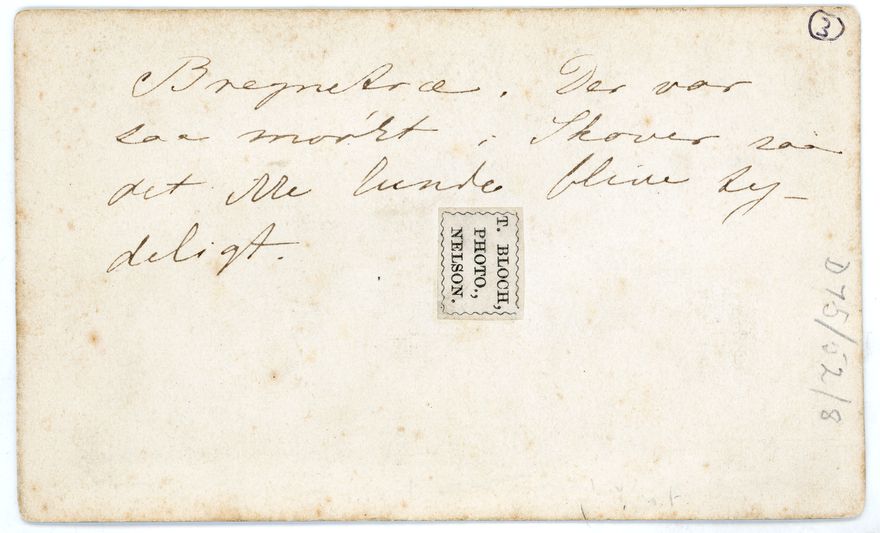 3
Bregnetræ. Der var
saa mørkt i Skoven saa
det ikke kunde blive ty-
deligt.
T. BLOCH,
PHOTO.,
NELSON.
D75/52/8